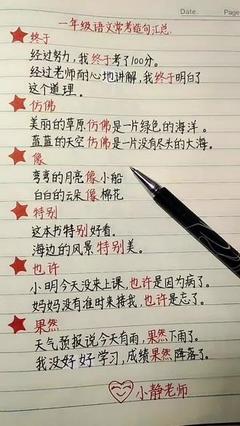 一年级语文常考造句汇总.
终于
经过努力,我终于考了100分。
经过老师耐心地讲解,我终于明白了
这个道理.
仿佛
美丽的草原仿佛是一片绿色的海洋。
蓝蓝的天空仿佛是一片没有尽头的大海。
像
弯弯的月亮像小船
白白的云朵像棉花
特别
这本书特别好看。
海边的风景特别美。
也许
小明今天没来上课,也许是因为病了。
妈妈没有准时来接我,也许是忘了。
果然
天气预报说今天有雨,果然下雨了。
我没好好学习,成绩果然降落了。
小静老师